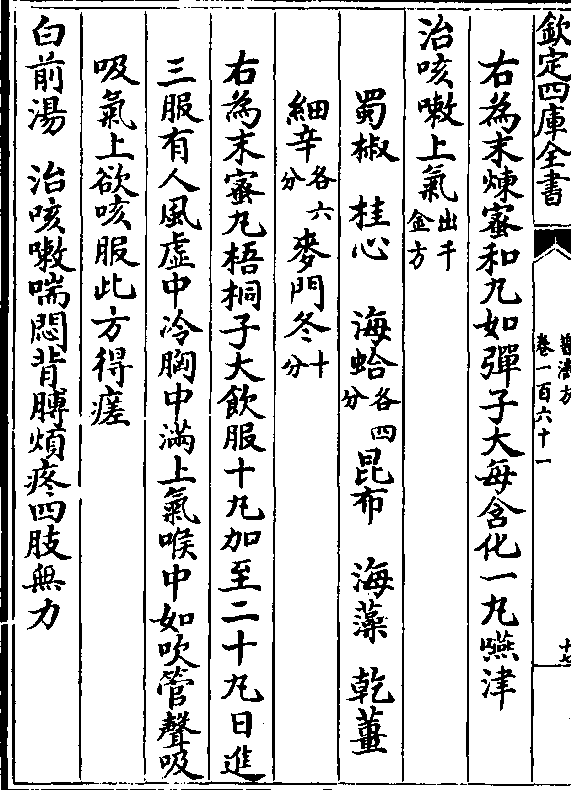 欽定四庫全書
普濟方
卷一百六十一
十七
右為末煉蜜和丸如彈子大每含化一丸嚥津
治咳嗽上氣出千金方
蜀椒 桂心 海蛤各四分 昆布 海藻 乾薑
細辛各六分 麥門冬十分
右為末蜜丸梧桐子大飲服十丸加至二十丸日進
三服有人風虛中冷胸中滿上氣喉中如吹管聲吸
吸氣上欲咳服此方得瘥
白前湯 治咳嗽喘悶背膊煩疼四肢無力